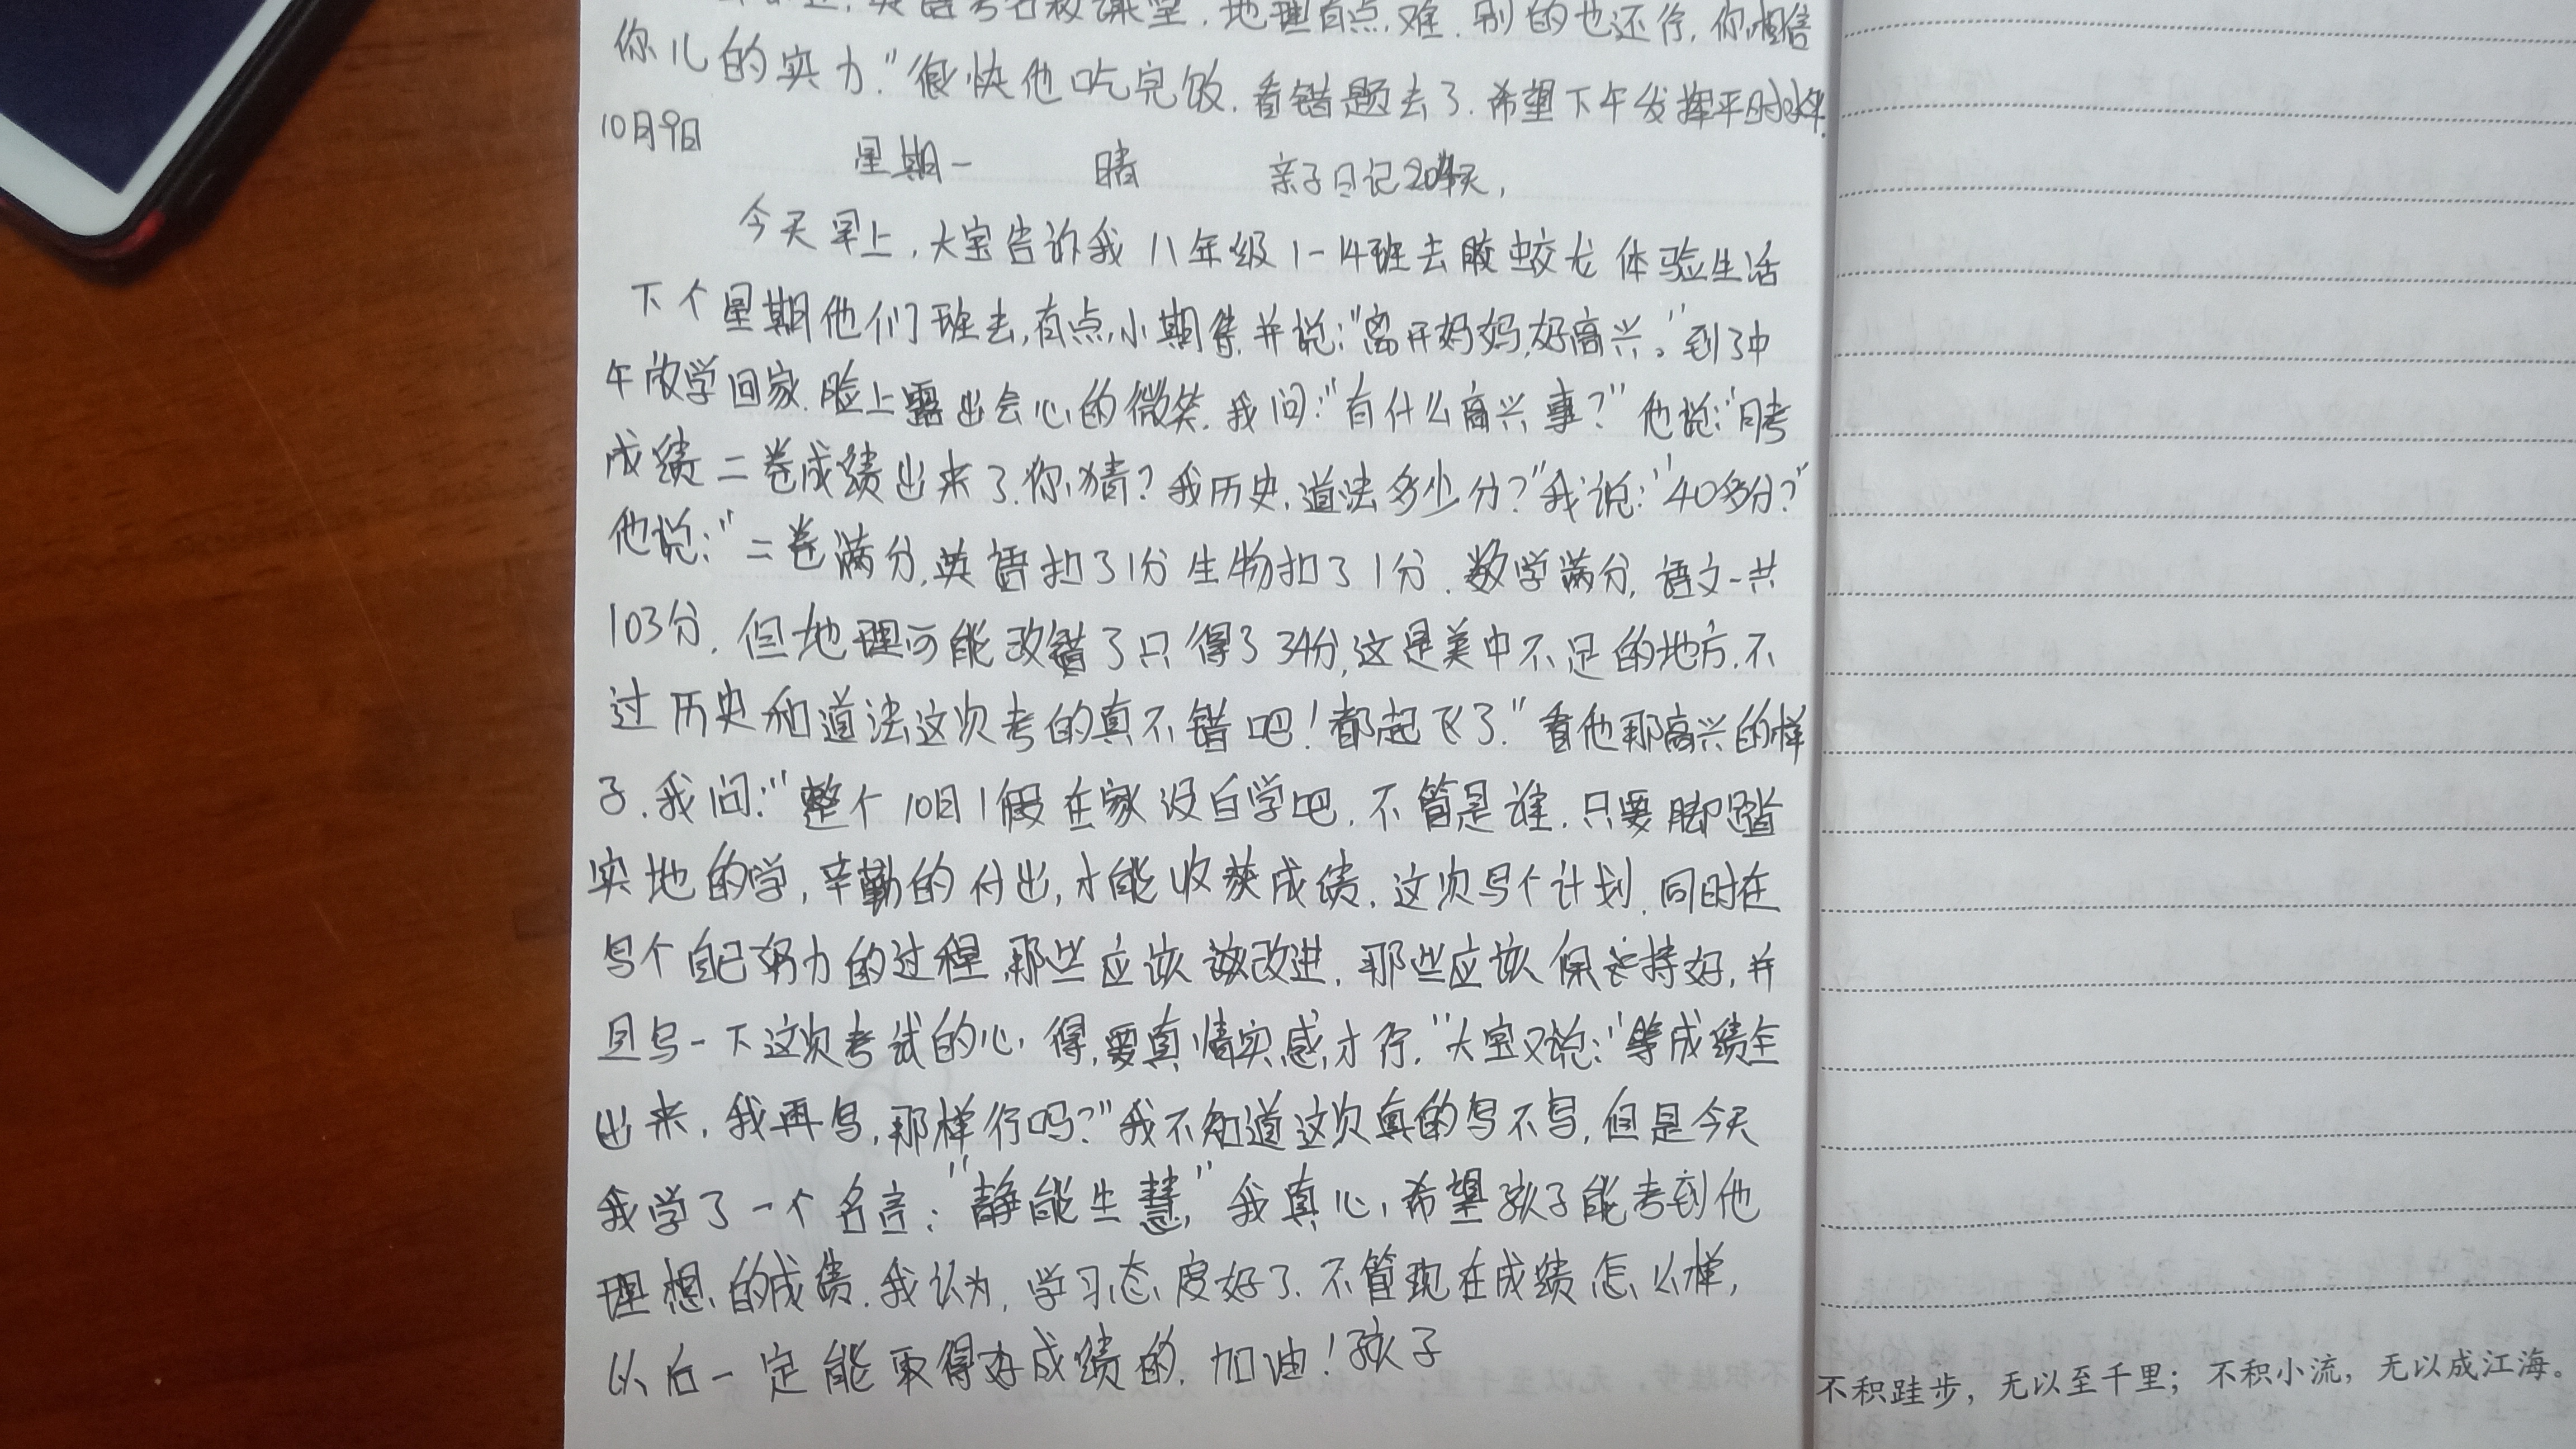 英语考名校课堂.地理有点难.别的也还行,你相信
你儿的实力."很快他吃完饭.看错题去了.希望下午发挥平时水平.
10月9日 星期一 晴 亲子日记204天,
今天早上,大宝告诉我八年级1-14班去胶蛟龙体验生活
下个星期他们班去,有点小期待并说:"离开妈妈,好高兴。"到了中
午放学回家.脸上露出会心的微笑.我问:"有什么高兴事?"他说:"月考
成绩二卷成绩出来了.你猜?我历史,道法多少分?"我说:"40多分?"
他说:"二卷满分,英语扣了1分生物扣了1分.数学满分,语文一共
103分.但地理可能改错了只得了34分,这是美中不足的地方.不
过历史和道法这次考的真不错吧!都起飞了."看他那高兴的样
子.我问:"整个10月1假在家没白学吧.不管是谁.只要脚踏
实地的学,辛勤的付出,才能收获成绩.这次写个计划.同时在
写个自己努力的过程,那些应该改进,那些应该保持好,并
且写一下这次考试的心得,要真情实感才行."大宝又说:"等成绩全
出来,我再写,那样行吗?"我不知道这次真的写不写,但是今天
我学了一个名言:"静能生慧,"我真心希望孩子能考到他
理想的成绩.我认为,学习态度好了.不管现在成绩怎么样,
以后一定能取得好成绩的.加油!孩子
不积跬步，无以至千里；不积小流，无以成江海。